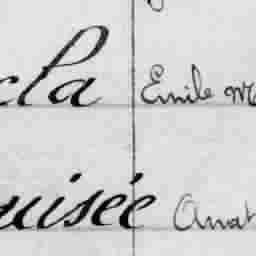 cla Emile M
uisée Anat